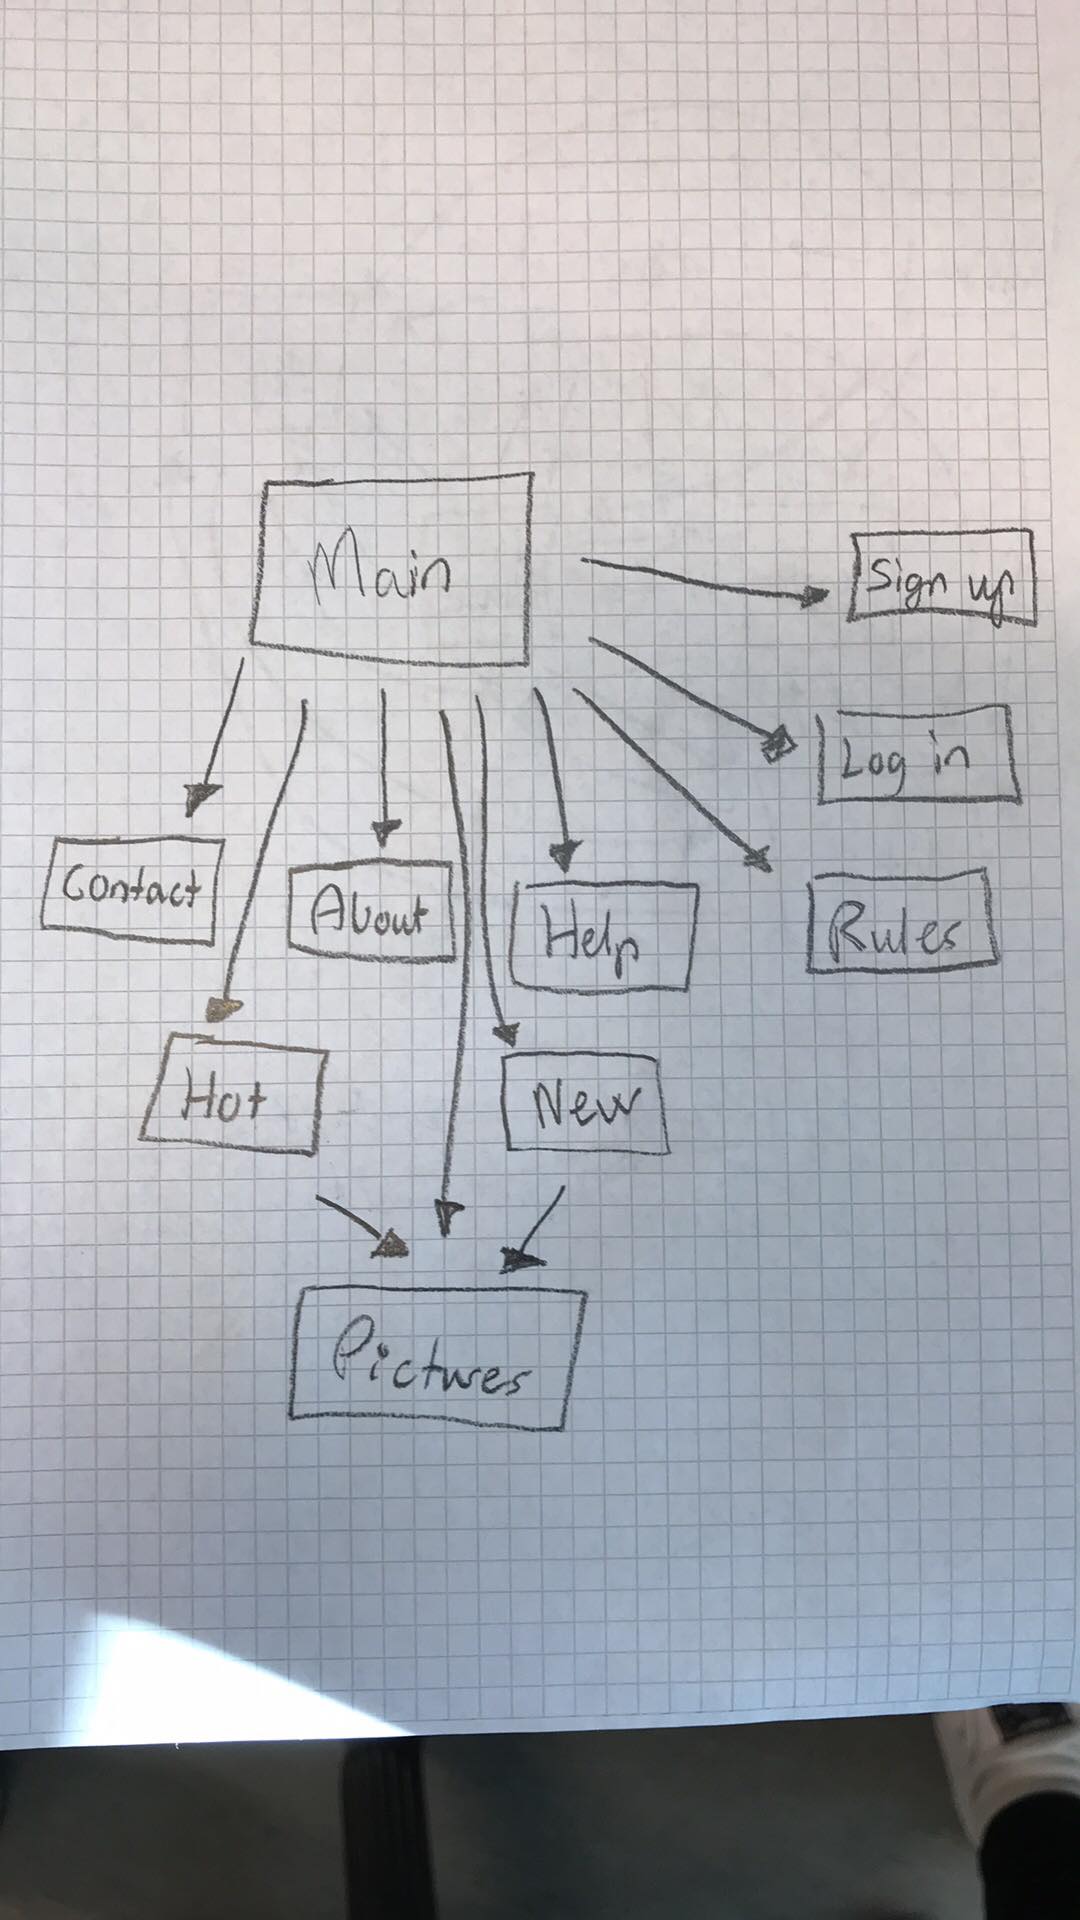 Main
Sign up
Log in
Contact
About
Help
Rules
Hot
New
Pictures